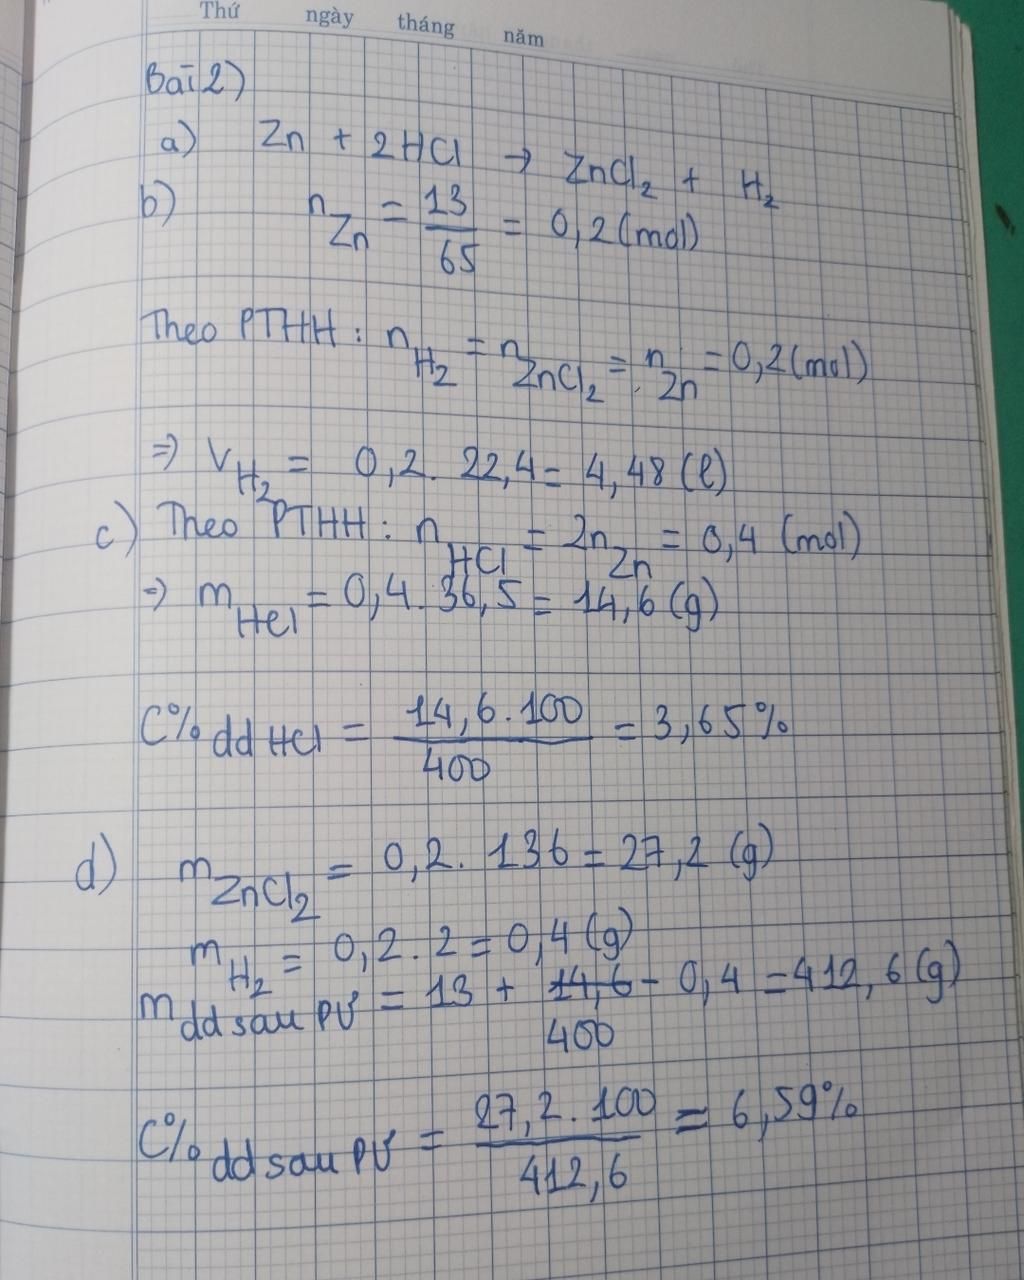 Thứ ngày tháng năm
Bài 2)
a) Zn + 2HCl → ZnCl₂ + H₂
b) n_Zn = 13/65 = 0,2 (mol)
Theo PTHH : n_H₂ = n_ZnCl₂ = n_Zn = 0,2 (mol)
⇒ V_H₂ = 0,2 . 22,4 = 4,48 (l)
c) Theo PTHH : n_HCl = 2n_Zn = 0,4 (mol)
⇒ m_HCl = 0,4 . 36,5 = 14,6 (g)
C% dd HCl = 14,6 . 100/400 = 3,65%
d) m_ZnCl₂ = 0,2 . 136 = 27,2 (g)
m_H₂ = 0,2 . 2 = 0,4 (g)
m dd sau PƯ = 13 + 14,6 - 0,4 = 412,6 (g)
400
C% dd sau PƯ = 27,2 . 100/412,6 = 6,59%